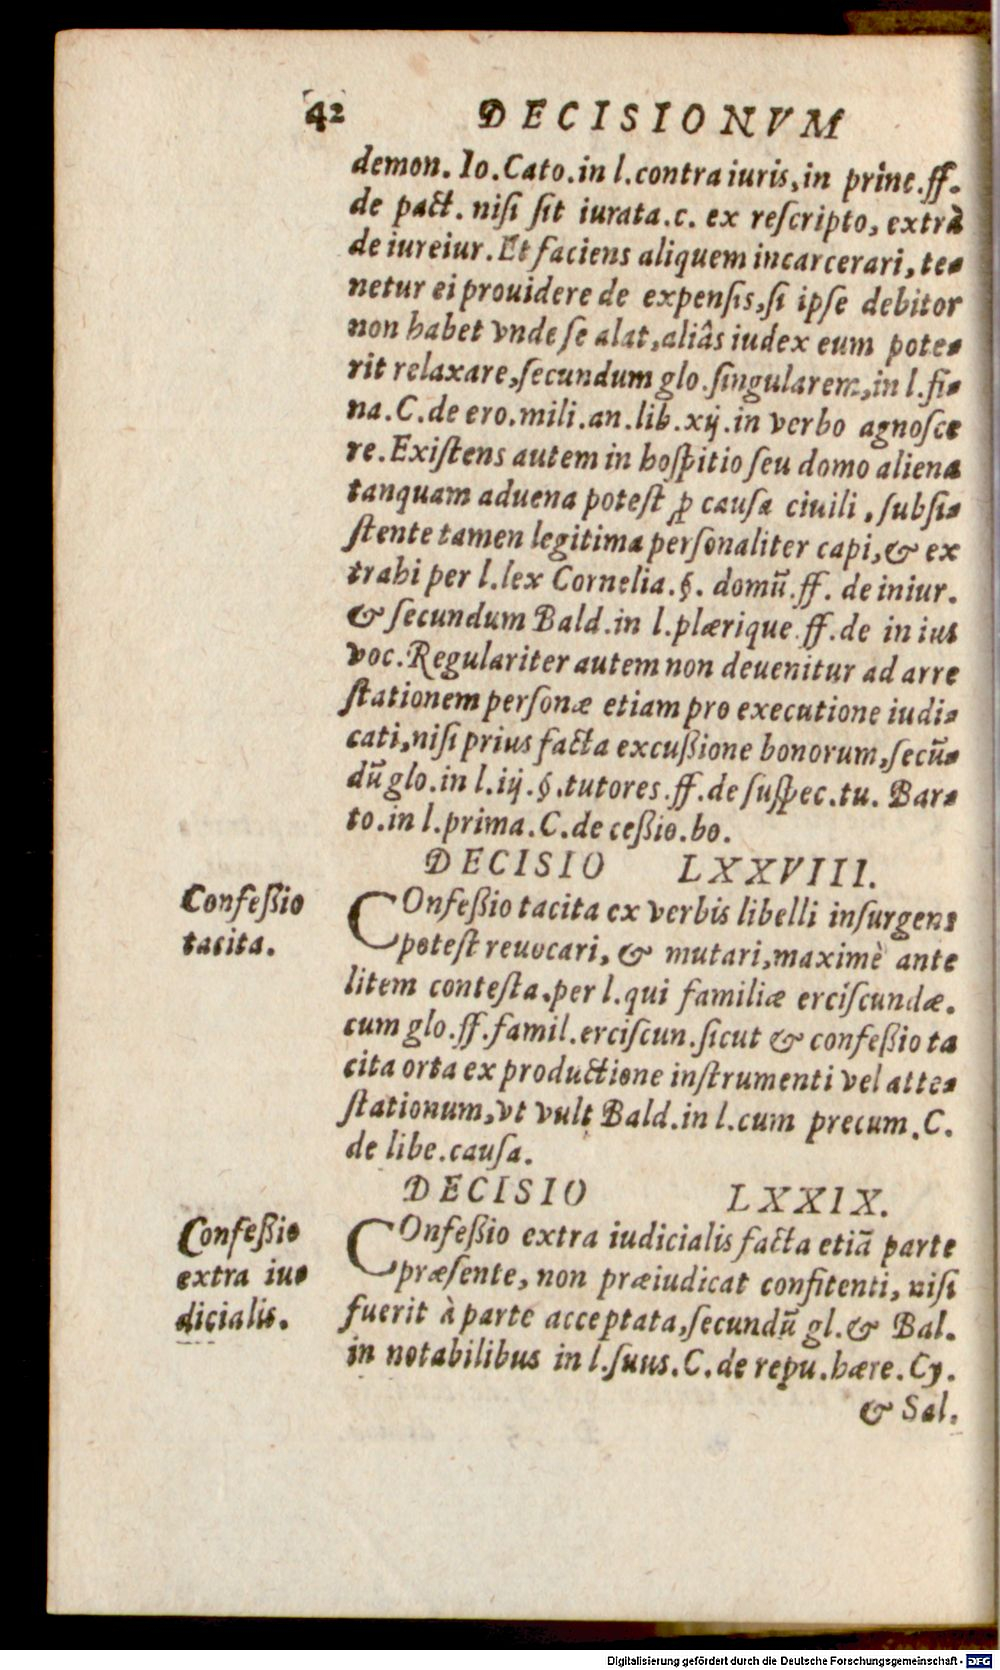 42 DECISIONVM
demon. Io. Cato. in l. contra iuris, in prine. ff.
de pact. nisi sit iurata. c. ex rescripto, extrà
de iureiur. Et faciens aliquem incarcerari, te-
netur ei prouidere de expensis, si ipse debitor
non habet vnde se alat, aliâs iudex eum pote-
rit relaxare, secundum glo. singularem, in l. fi-
na. C. de ero. mili. an. lib. xij. in verbo agnosce
re. Existens autem in hospitio seu domo aliena
tanquam aduena potest ꝓ causa ciuili, subsi-
stente tamen legitima personaliter capi, & ex
trahi per l. lex Cornelia. §. domū. ff. de iniur.
& secundum Bald. in l. plærique ff. de in ius
voc. Regulariter autem non deuenitur ad arre
stationem personæ etiam pro executione iudi-
cati, nisi prius facta excußione bonorum, secū-
dū glo. in l. iij. §. tutores. ff. de suspec. tu. Bar-
to. in l. prima. C. de ceßio. bo.
DECISIO LXXVIII.
Confeßio
tacita.
COnfeßio tacita ex verbis libelli insurgens
potest reuocari, & mutari, maximè ante
litem contesta. per l. qui familiæ erciscundæ.
cum glo. ff. famil. erciscun. sicut & confeßio ta
cita orta ex productione instrumenti vel atte-
stationum, vt vult Bald. in l. cum precum. C.
de libe. causa.
DECISIO LXXIX.
Confeßio
extra iu-
dicialis.
COnfeßio extra iudicialis facta etiā parte
præsente, non præiudicat confitenti, nisi
fuerit à parte acceptata, secundū gl. & Bal.
in notabilibus in l. suus. C. de repu. hære. Cy.
& Sal.
Digitalisierung gefördert durch die Deutsche Forschungsgemeinschaft - DFG